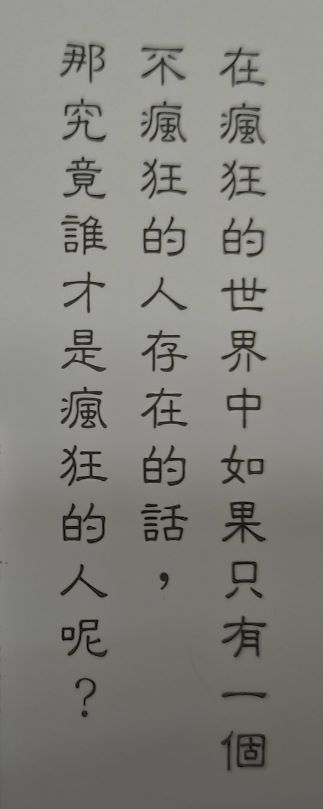 在瘋狂的世界中如果只有一個
不瘋狂的人存在的話，
那究竟誰才是瘋狂的人呢？